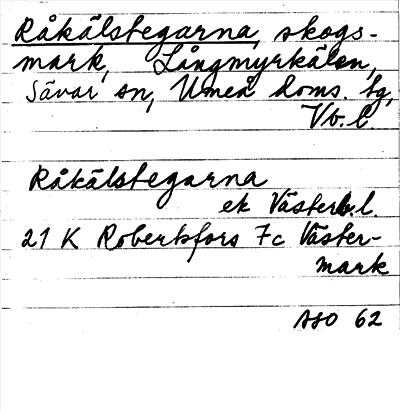 Råkälstegarna, skogs-
mark, Långmyrkälen,
Sävar sn, Umeå doms. tg,
Vb. l.
Råkälstegarna
ek Västerb.l.
21 K Robertsfors 7c Väster-
mark
ASO 62